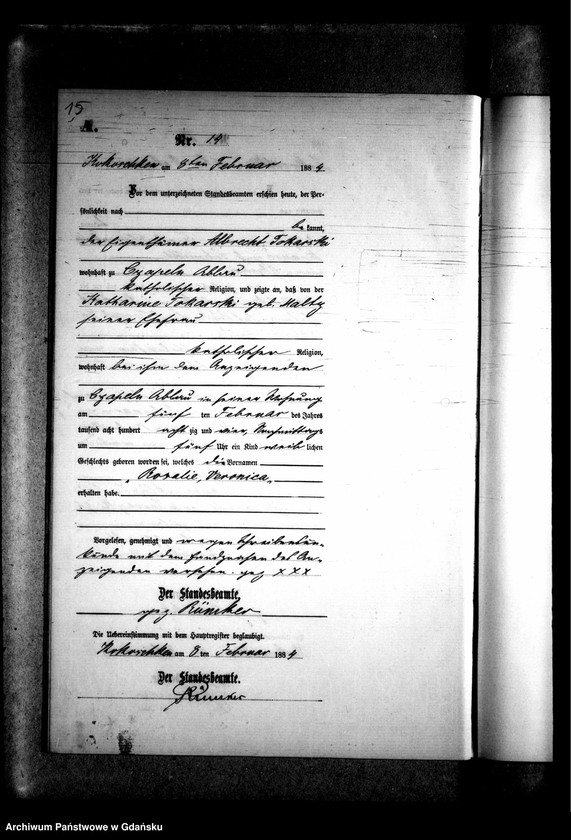 15
A.
Nr. 14
Kokoschken am 8ten Februar 1884
Vor dem unterzeichneten Standesbeamten erschien heute, der Per-
sönlichkeit nach
bekannt,
der Eigenthümer Albrecht Tokarski
wohnhaft zu Czapeln Abbau
katholischer Religion, und zeigte an, daß von der
Katharine Tokarski geb. Maltz
seiner Ehefrau
katholischer Religion,
wohnhaft bei ihm dem Anzeigenden
zu Czapeln Abbau in seiner Wohnung
am fünf ten Februar des Jahres
tausend acht hundert acht zig und vier, Nachmittags
um fünf Uhr ein Kind weib lichen
Geschlechts geboren worden sei, welches die Vornamen
„Rosalie, Veronica„
erhalten habe.
Vorgelesen, genehmigt und wegen Schreibensun-
kunde mit dem Handzeichen des An-
zeigenden versehen. gez XXX
Der Standesbeamte,
gez. Rümker
Die Uebereinstimmung mit dem Hauptregister beglaubigt.
Kokoschken am 8 ten Februar 1884
Der Standesbeamte.
Rümker
Archiwum Państwowe w Gdańsku